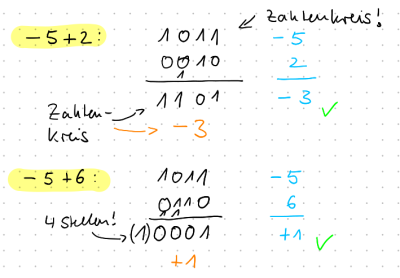 Zahlenkreis!
-5+2: 1011 -5
0010 2
1
1101 -3 ✓
Zahlen-
kreis -3
-5+6: 1011 -5
0110 6
4 Stellen! 11
(1)0001 +1 ✓
+1